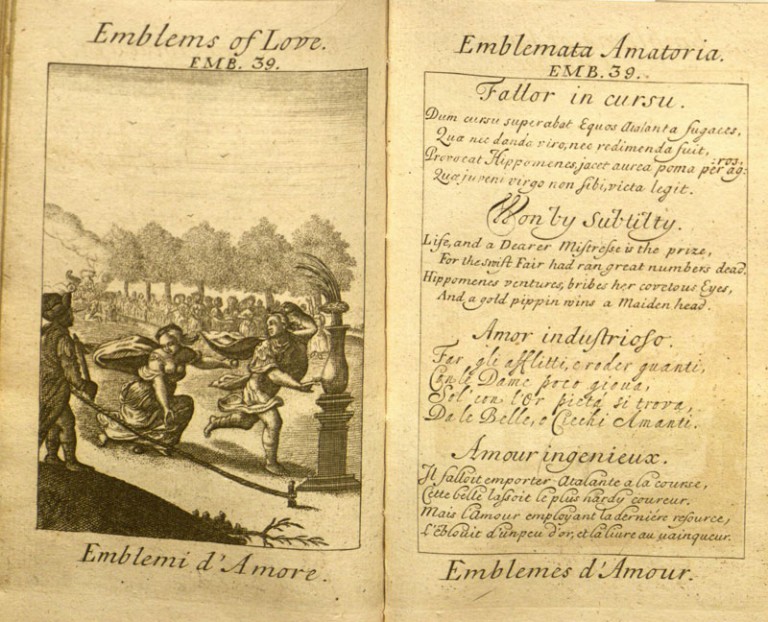 Emblems of Love.
EMB. 39.
Emblemi d'Amore.
Emblemata Amatoria.
EMB. 39.
Fallor in cursu.
Dum cursu superabat Equos Atalanta fugaces,
Quæ nec danda viro, nec redimenda fuit,
Provocat Hippomenes, jacet aurea poma per ag:
ros.
Quæ juveni virgo non sibi, victa legit.
Won by Subtilty.
Life, and a Dearer Mistresse is the prize,
For the swift Fair had ran great numbers dead.
Hippomenes ventures, bribes her covetous Eyes,
And a gold pippin wins a Maiden head.
Amor industrioso.
Far gli afflitti, e roder guanti,
Con le Dame poco giova,
Sol' con l'Or pietà si trova,
Da le Belle, e Ciechi Amanti.
Amour ingenieux.
Il falloit emporter Atalante a la course,
Cette belle lassoit le plus hardy coureur.
Mais l'Amour employant la derniére resource,
L'éblouie d'un peu d'or, et la livre au vainqueur.
Emblemes d'Amour.